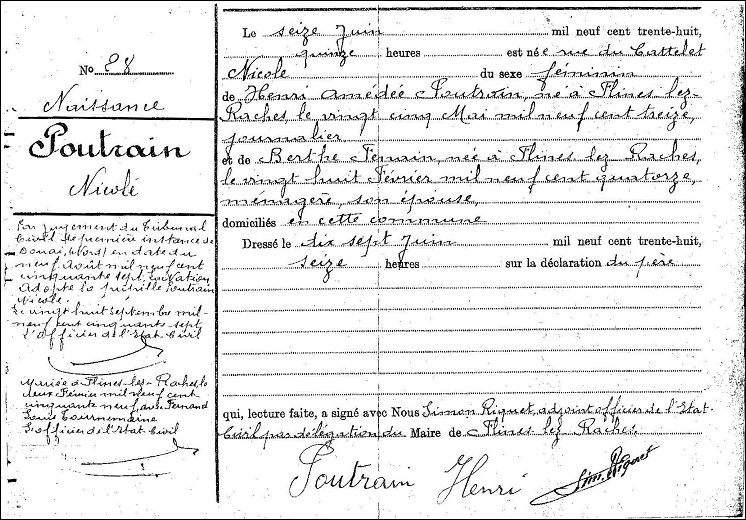 No 28
Naissance
Poutrain
Nicole
Par jugement du Tribunal
Civil de première instance de
Douai (Nord) en date du
neuf Août mil neuf cent
cinquante sept, la Nation
Adopte la fille Poutrain
Nicole.
Le vingt huit septembre mil-
neuf cent cinquante sept
L'officier de l'Etat Civil
Mariée à Flines-lez-Raches le
deux Février mil neuf cent
cinquante neuf avec Fernand
Louis
L'officier de l'Etat Civil
Le seize Juin mil neuf cent trente-huit,
quinze heures est née rue du Cattelet
Nicole du sexe féminin
de Henri Amédée Poutrain, né à Flines lez-
Raches, le vingt cinq Mai mil neuf cent treize,
journalier
et de Berthe née à Flines lez Raches,
le vingt huit Février mil neuf cent quatorze,
ménagère, son épouse,
domiciliés en cette commune
Dressé le dix sept Juin mil neuf cent trente-huit,
seize heures sur la déclaration du père
qui, lecture faite, a signé avec Nous Simon Riquet, adjoint officier de l'Etat-
Civil par délégation du Maire de Flines lez Raches.
Poutrain Henri Sim. Riquet